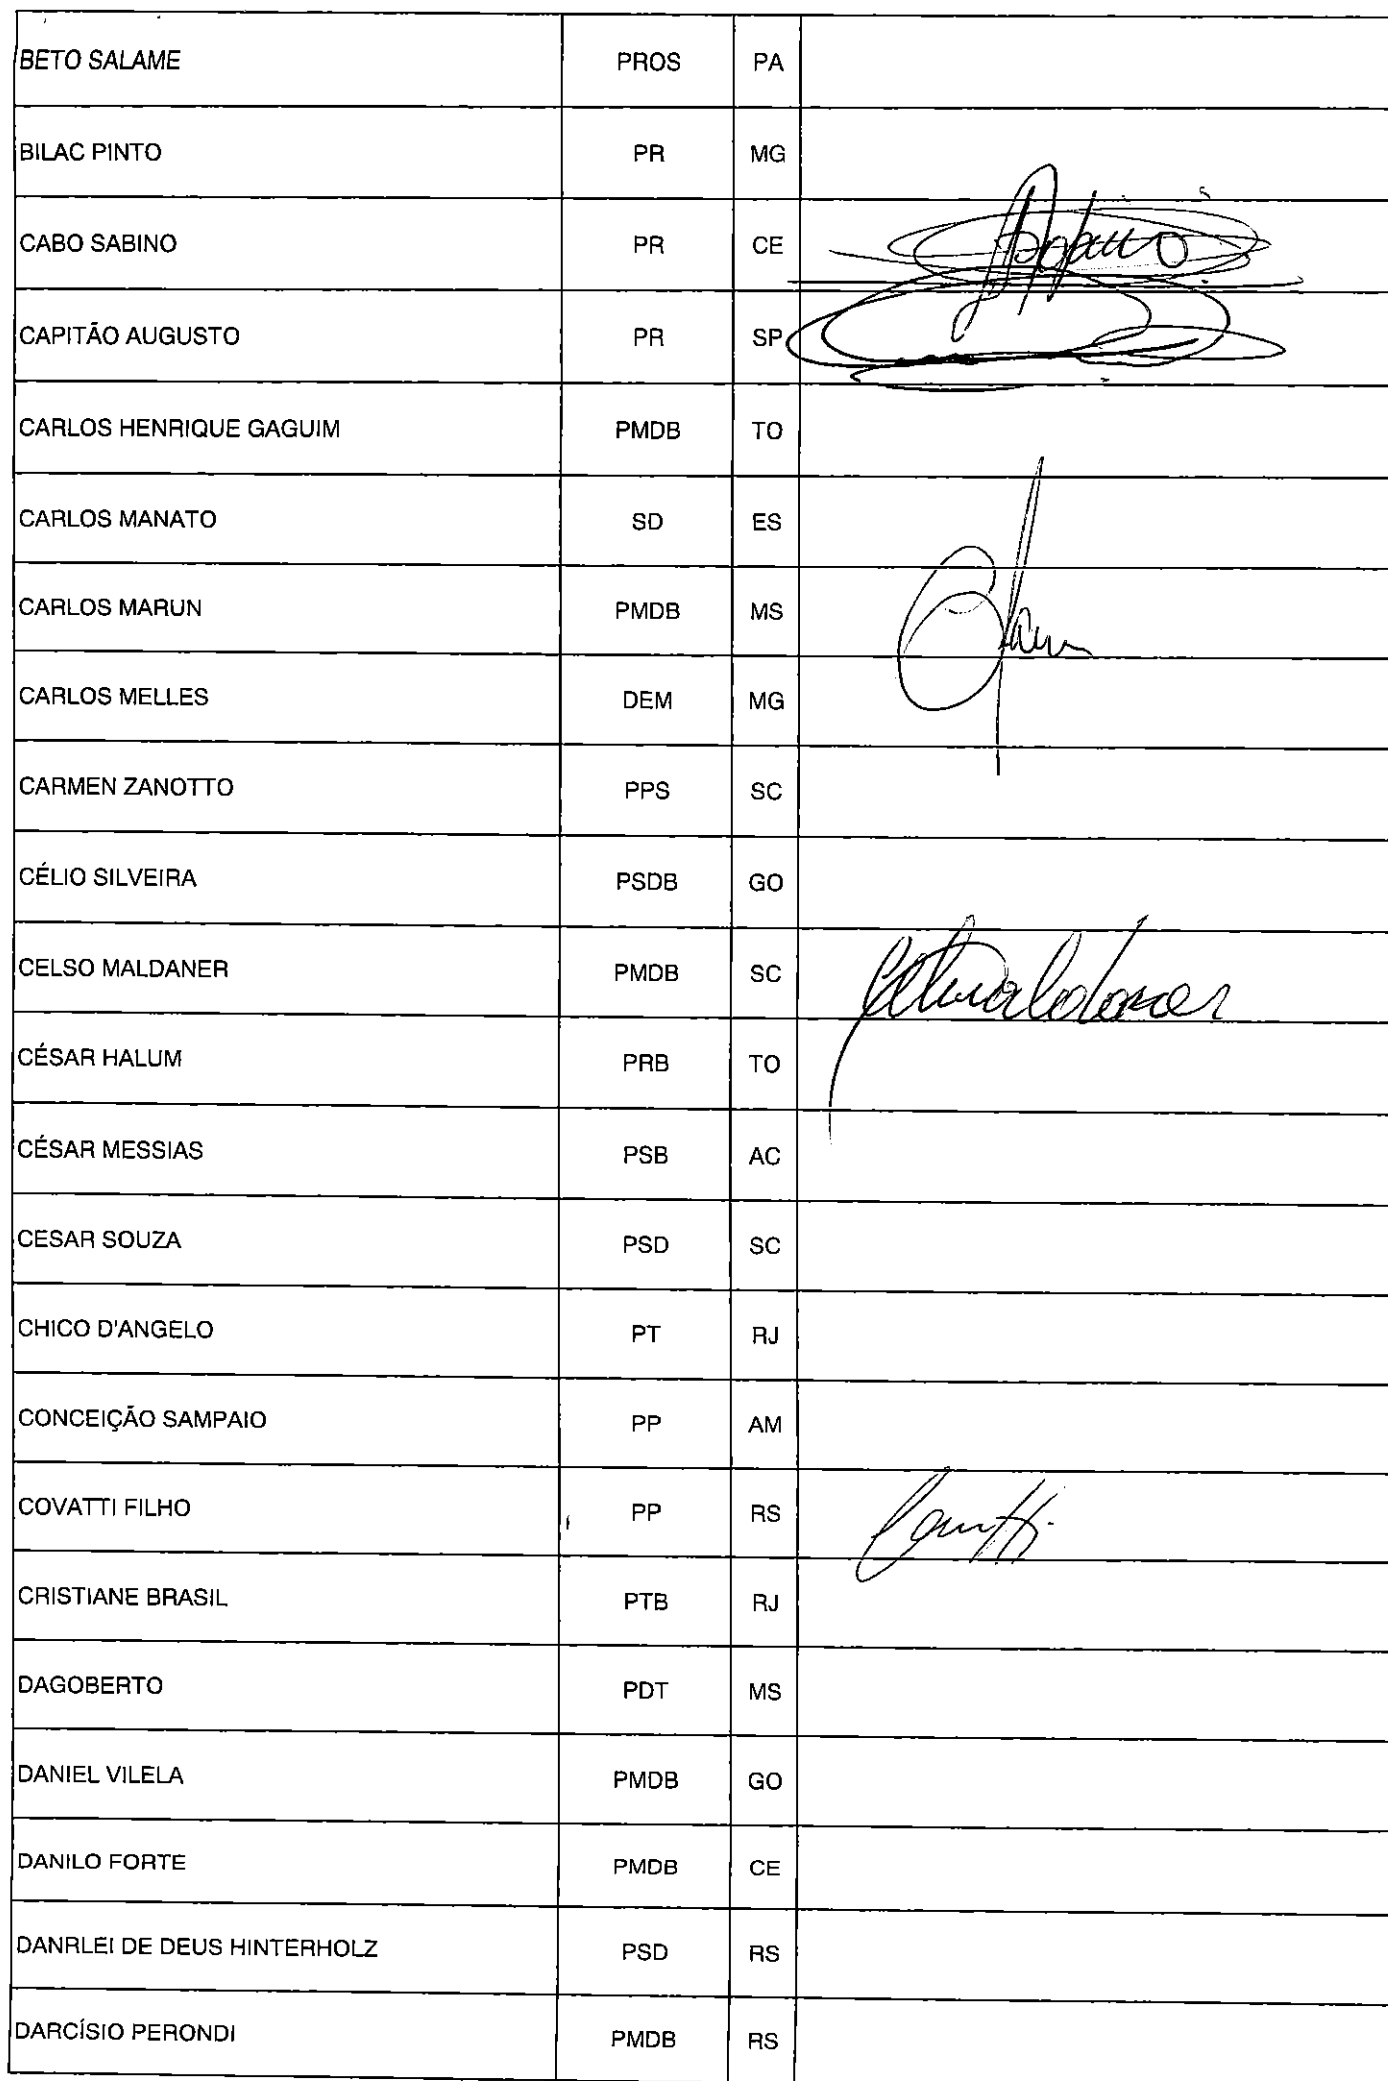 BETO SALAME PROS PA
BILAC PINTO PR MG
CABO SABINO PR CE
CAPITÃO AUGUSTO PR SP
CARLOS HENRIQUE GAGUIM PMDB TO
CARLOS MANATO SD ES
CARLOS MARUN PMDB MS
CARLOS MELLES DEM MG
CARMEN ZANOTTO PPS SC
CÉLIO SILVEIRA PSDB GO
CELSO MALDANER PMDB SC
CÉSAR HALUM PRB TO
CÉSAR MESSIAS PSB AC
CESAR SOUZA PSD SC
CHICO D'ANGELO PT RJ
CONCEIÇÃO SAMPAIO PP AM
COVATTI FILHO PP RS
CRISTIANE BRASIL PTB RJ
DAGOBERTO PDT MS
DANIEL VILELA PMDB GO
DANILO FORTE PMDB CE
DANRLEI DE DEUS HINTERHOLZ PSD RS
DARCÍSIO PERONDI PMDB RS